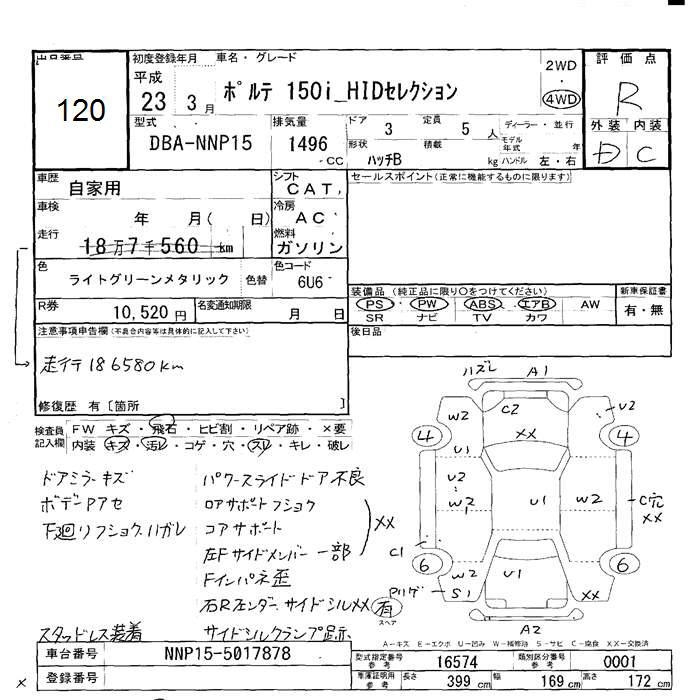 出品番号
120
初度登録年月 車名・グレード
平成 23 3 月
ポルテ 150i_HIDセレクション
2WD
・
4WD
評価点
R
外装 内装
D C
型式
DBA-NNP15
排気量
1496 CC
ドア 3 定員 5 人
形状 ハッチB 積載 kg
ディーラー・並行
モデル年式 年
ハンドル 左・右
車歴
自家用
シフト
CAT,
セールスポイント(正常に機能するものに限ります)
車検
年 月( 日)
冷房
AC
走行
18万7千560 km
燃料
ガソリン
色
ライトグリーンメタリック 色替
色コード
6U6
装備品 (純正品に限り〇をつけてください)
PS・PW・ABS・エアB・AW
SR ナビ TV カワ
新車保証書
有・無
R券 10,520 円
名変通知期限 月 日
後日品
注意事項申告欄(不具合内容等は具体的に記入して下さい)
走行186580km
修復歴 有〔箇所 〕
検査員記入欄
FW キズ・飛石・ヒビ割・リペア跡・×要
内装 キズ・汚レ・コゲ・穴・スレ・キレ・破レ
ドアミラーキズ
ボデーPアセ
下廻リフショク.ハガレ
スタッドレス装着
パワースライドドア不良
ロアサポートフショク
コアサポート
左Fサイドメンバー一部
XX
Fインパネ歪
右Rフェンダー.サイドシルXX
サイドシルクランプ跡.
ハズレ A1
W2 C2 U2
4 XX 4
U1
U2
W2 U1 W2 C穴
XX
C1
6 6
W2 U1
Pリゲ S1 XX
有
スペア
A2
A-キズ E-エクボ U-凹み W-補修跡 S-サビ C-腐食 XX-交換済
車台番号 NNP15-5017878
登録番号
型式指定番号 参考 16574
類別区分番号 参考 0001
車庫証明用 参考 長さ 399 cm 幅 169 cm 高さ 172 cm
x